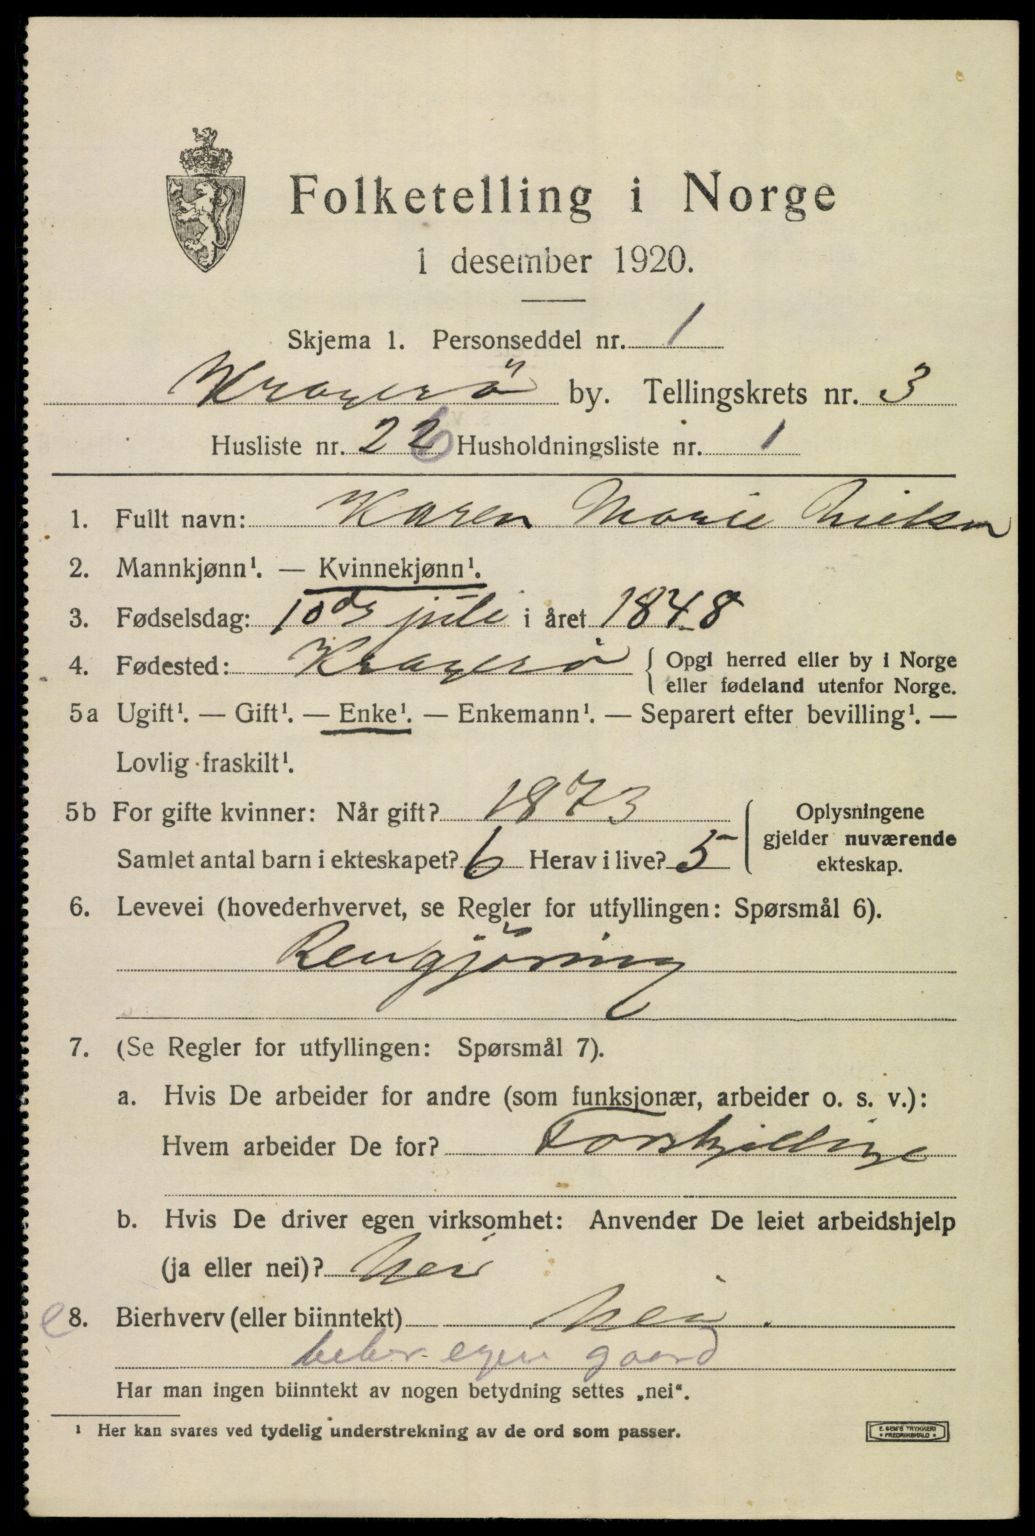 Folketelling i Norge
1 desember 1920.
Skjema 1. Personseddel nr. 1
Kragerö by. Tellingskrets nr. 3
Husliste nr. 22 6 Husholdningsliste nr. 1
1. Fullt navn: Karen Marie Nielsen
2. Mannkjønn¹. — Kvinnekjønn¹.
3. Fødselsdag: 10de juli i året 1848
4. Fødested: Kragerö { Opgi herred eller by i Norge
eller fødeland utenfor Norge.
5a Ugift¹. — Gift¹. — Enke¹. — Enkemann¹. — Separert efter bevilling¹. —
Lovlig fraskilt¹.
5b For gifte kvinner: Når gift? 1873
Samlet antal barn i ekteskapet? 6 Herav i live? 5
Oplysningene
gjelder nuværende
ekteskap.
6. Levevei (hovederhvervet, se Regler for utfyllingen: Spørsmål 6).
Rengjöring
7. (Se Regler for utfyllingen: Spørsmål 7).
a. Hvis De arbeider for andre (som funksjonær, arbeider o. s. v.):
Hvem arbeider De for? Forskjellige
b. Hvis De driver egen virksomhet: Anvender De leiet arbeidshjelp
(ja eller nei)? Nei
e 8. Bierhverv (eller biinntekt) Nei.
bebor egen gaard
Har man ingen biinntekt av nogen betydning settes „nei“.
¹ Her kan svares ved tydelig understrekning av de ord som passer.
E. SEM'S TRYKKERI
• FREDRIKSHALD •